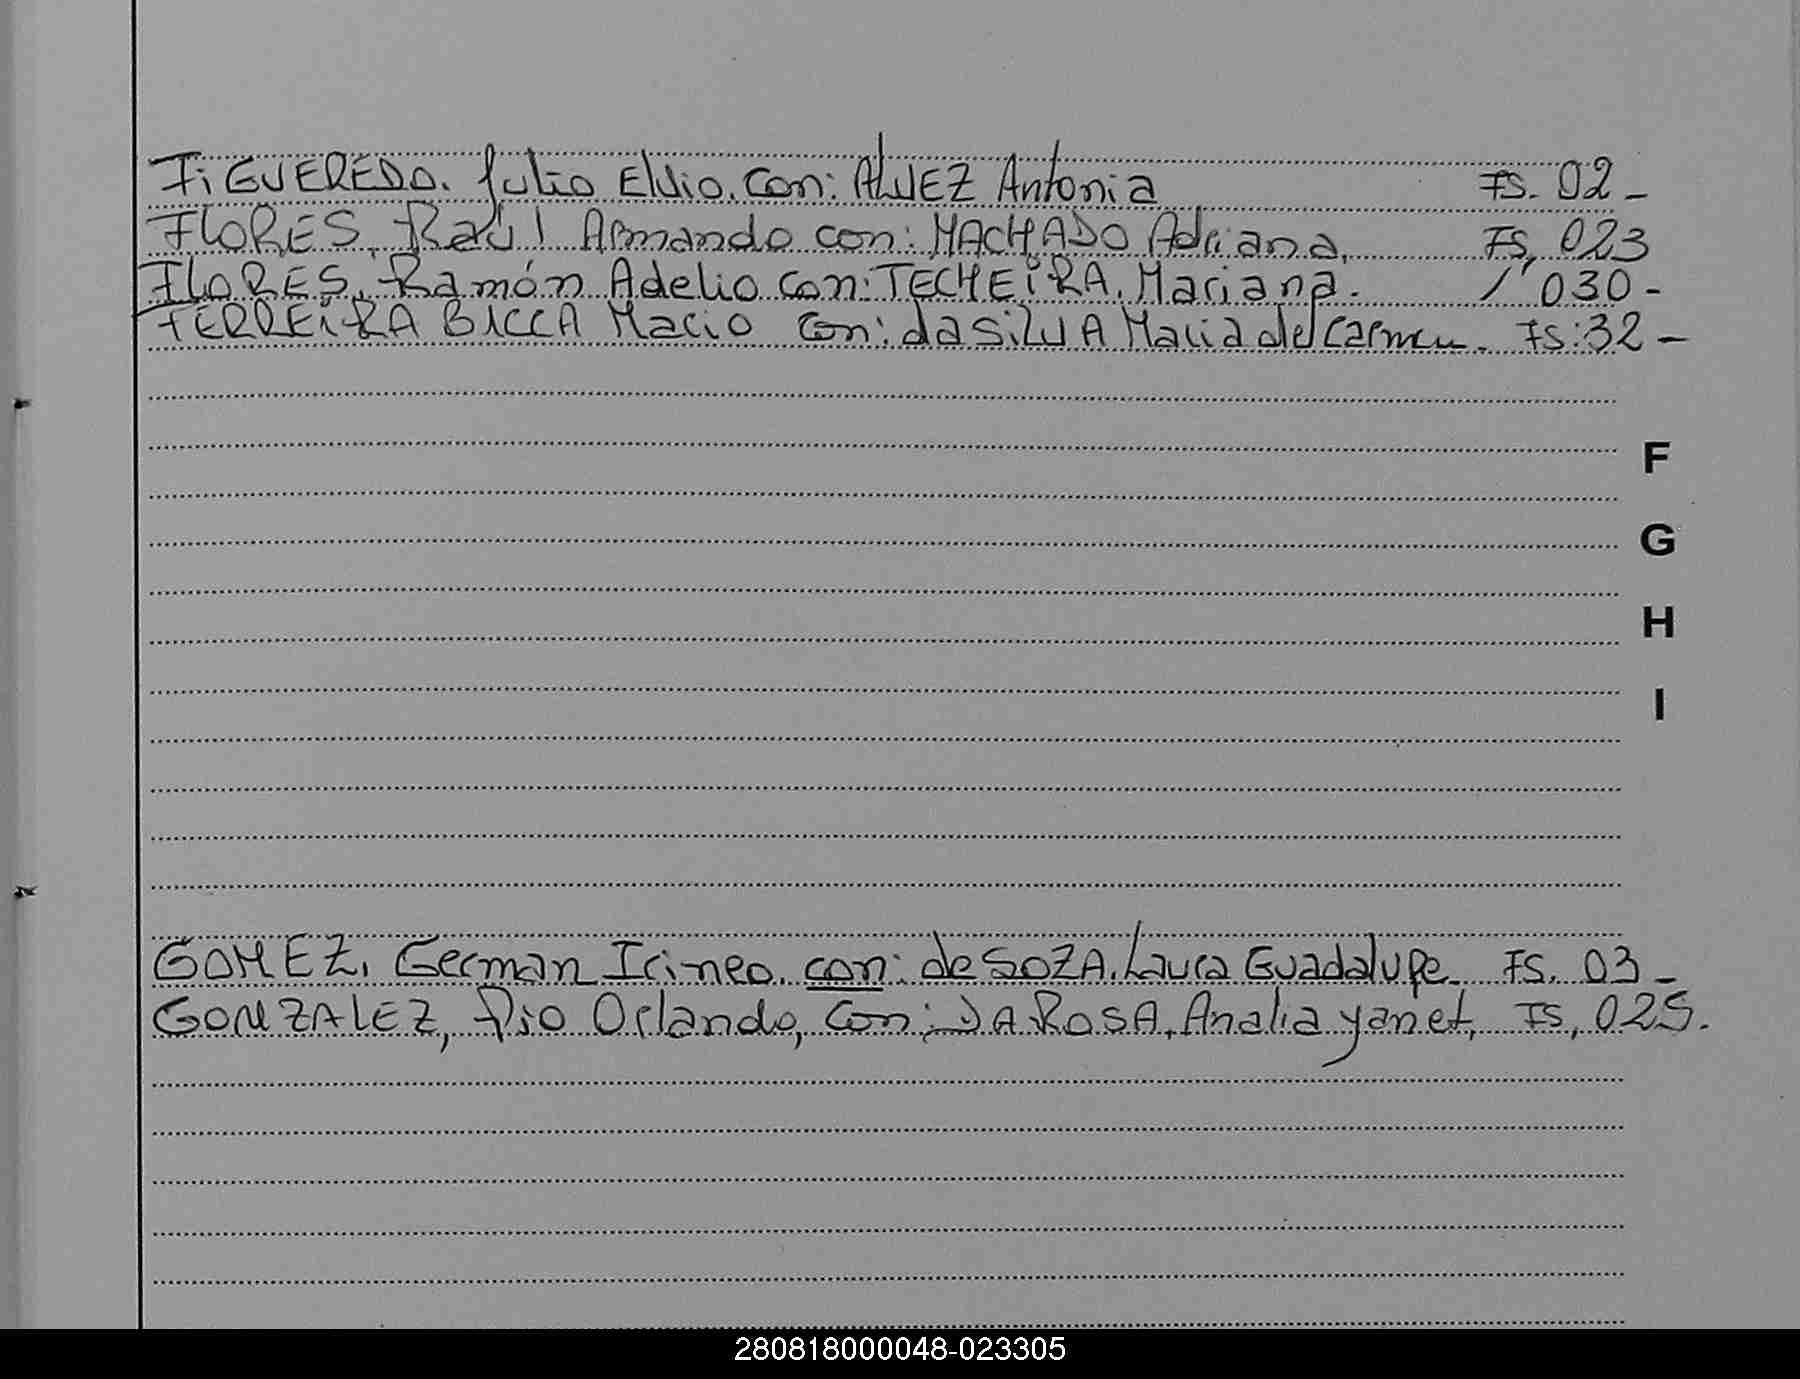 FiGUEREDO. Julio Elvio. Con: AlVEZ Antonia FS. 02-
FloRES, Raúl Armando con: MACHADO Adriana, FS, 023
FloRES, Ramón Adelio Con: TECHEiRA, Mariana. / " 030-
FERREiRA BACCA Mario Con: da SilVA Maria del Carmen. FS: 32-
F
G
H
I
GOMEZ, German Irineo. con: de SOZA. Laura Guadalupe. FS. 03-
GONZALEZ, Pio Orlando, Con: DA ROSA, Analia yanet, FS, 025.
280818000048-023305